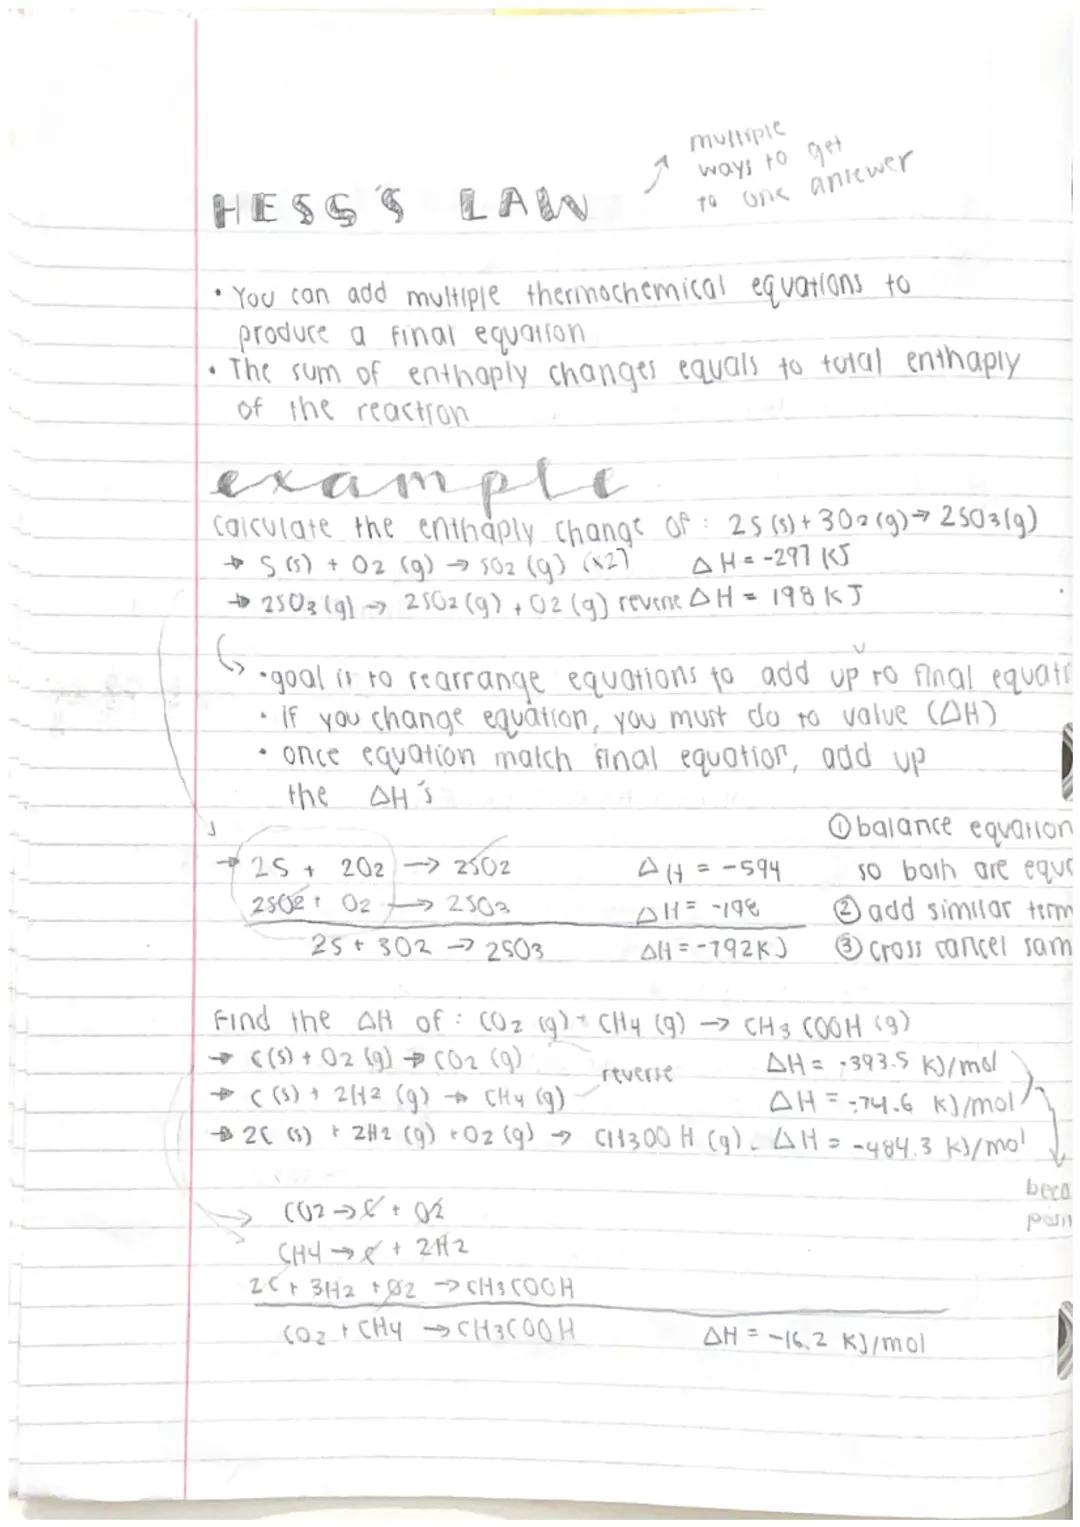 multiple
ways to get
to one answer
HESS'S LAW
• You can add multiple thermochemical equations to
produce a final equation
• The sum of enthaply changes equals to total enthaply
of the reaction
example
calculate the enthaply change of : 2S (s) + 3O2 (g) → 2SO3 (g)
→ S (s) + O2 (g) → SO2 (g) (x2) ΔH = -297 KJ
→ 2SO3 (g) → 2SO2 (g) + O2 (g) reverse ΔH = 198 KJ
• goal is to rearrange equations to add up to final equati
• if you change equation, you must do to value (ΔH)
• once equation match final equation, add up
the ΔH's
① balance equation
→ 2S + 2O2 → 2SO2 ΔH = -594 so both are equa
2SO2 + O2 → 2SO3 ΔH = -198 ② add similar term
2S + 3O2 → 2SO3 ΔH = -792KJ ③ cross cancel sam
Find the ΔH of : CO2 (g) + CH4 (g) → CH3COOH (g)
→ C (s) + O2 (g) → CO2 (g) reverse ΔH = -393.5 KJ/mol
→ C (s) + 2H2 (g) → CH4 (g) ΔH = -74.6 KJ/mol
→ 2C (s) + 2H2 (g) + O2 (g) → CH3OOH (g) ΔH = -484.3 KJ/mol
beca
posi
→ CO2 → C + O2
CH4 → C + 2H2
2C + 3H2 + O2 → CH3COOH
CO2 + CH4 → CH3COOH ΔH = -16.2 KJ/mol